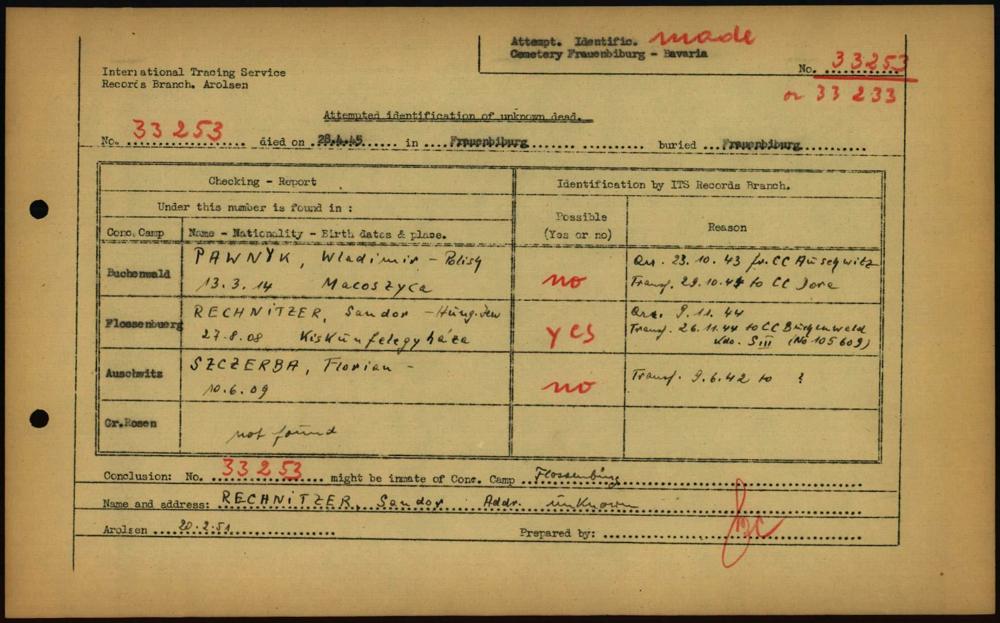 Attempt. Identific. made
Cemetery Frauenbiburg - Bavaria
International Tracing Service
Records Branch. Arolsen
No. 33253
or 33 233
Attempted identification of unknown dead.
No. 33 253 died on 28.4.45 in Frauenbiburg buried Frauenbiburg
Checking - Report
Identification by ITS Records Branch.
Under this number is found in :
Possible
(Yes or no)
Reason
Conc. Camp
Name - Nationality - Birth dates & place.
Buchenwald
PAWNYK, Wladimir - Polish
13.3.14 Macoszyca
no
Arr. 23.10.43 fr. CC Auschwitz
Transf. 29.10.44 to CC Dora
Flossenbuerg
RECHNITZER, Sandor - Hung. Jew
27.8.08 Kiskunfelegyháza
yes
Arr. 9.11.44
Transf. 26.11.44 to CC Buchenwald
Kdo. SIII (No 105609)
Auschwitz
SZCZERBA, Florian -
10.6.09
no
Transf. 9.6.42 to ?
Gr.Rosen
not found
Conclusion: No. 33253 might be inmate of Conc. Camp Flossenbürg
Name and address: RECHNITZER, Sandor Addr. unknown
Arolsen 20.2.51
Prepared by: